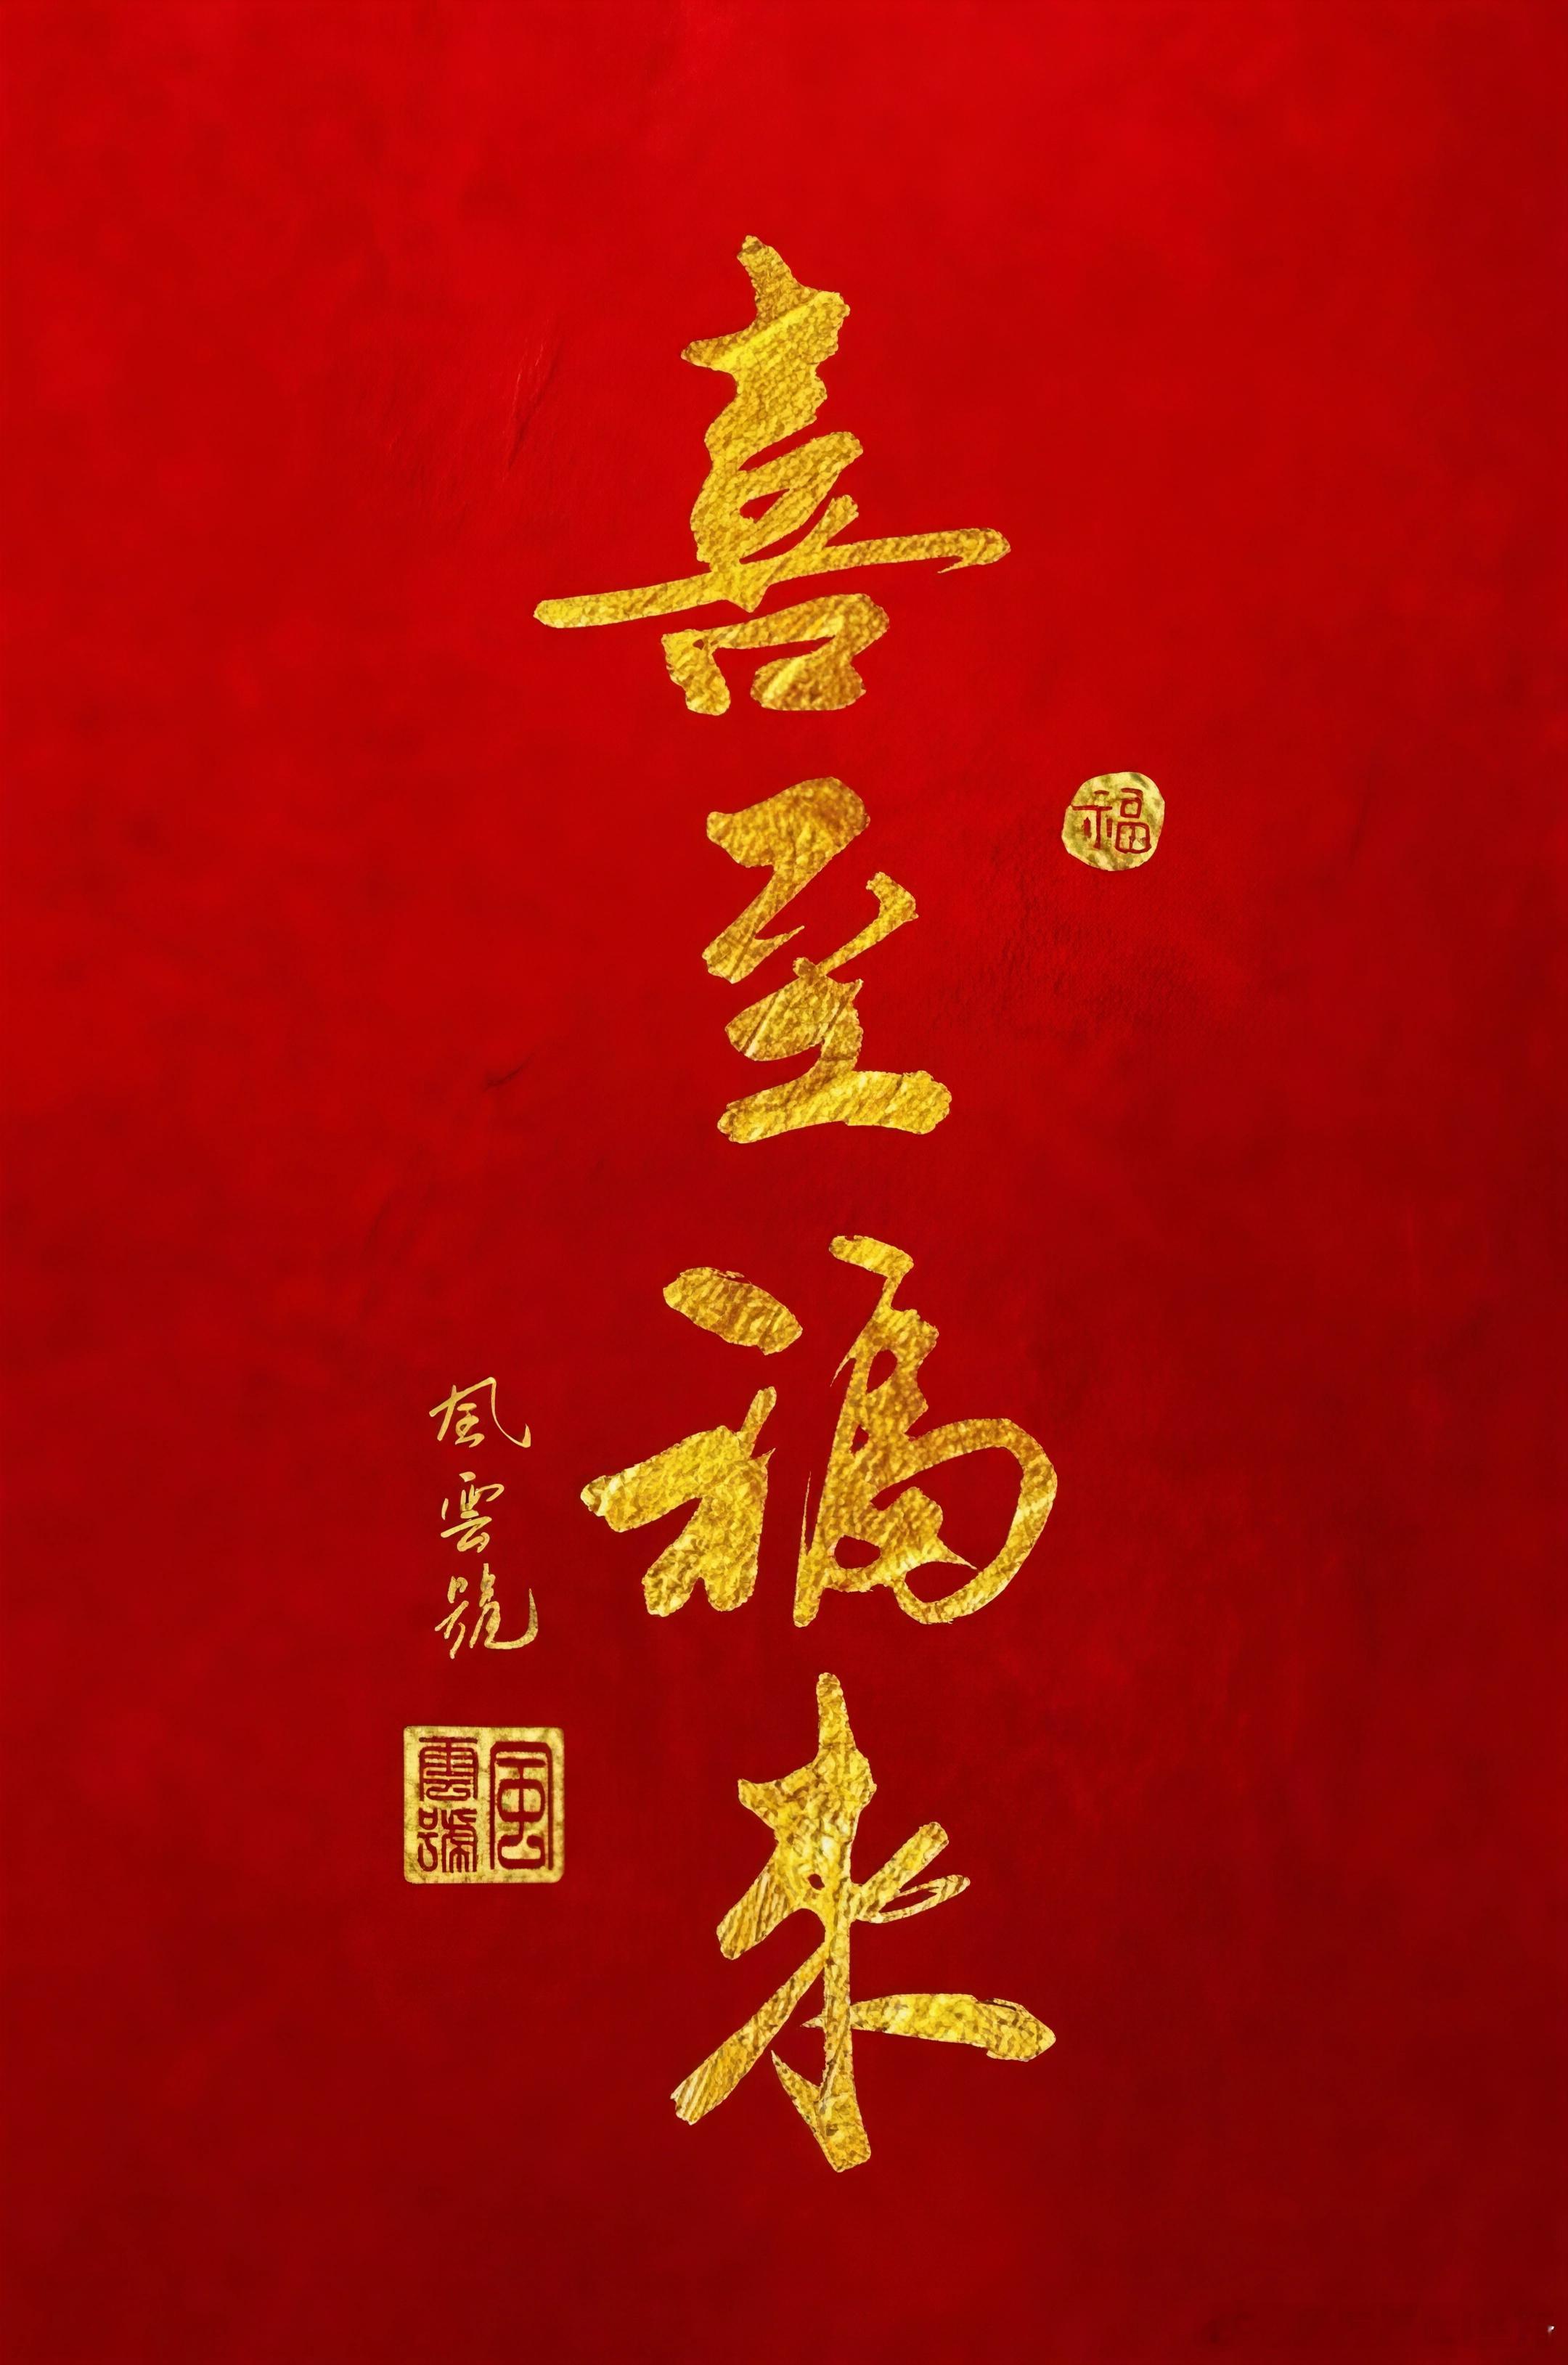 喜至福来
福
風雲號
風雲號